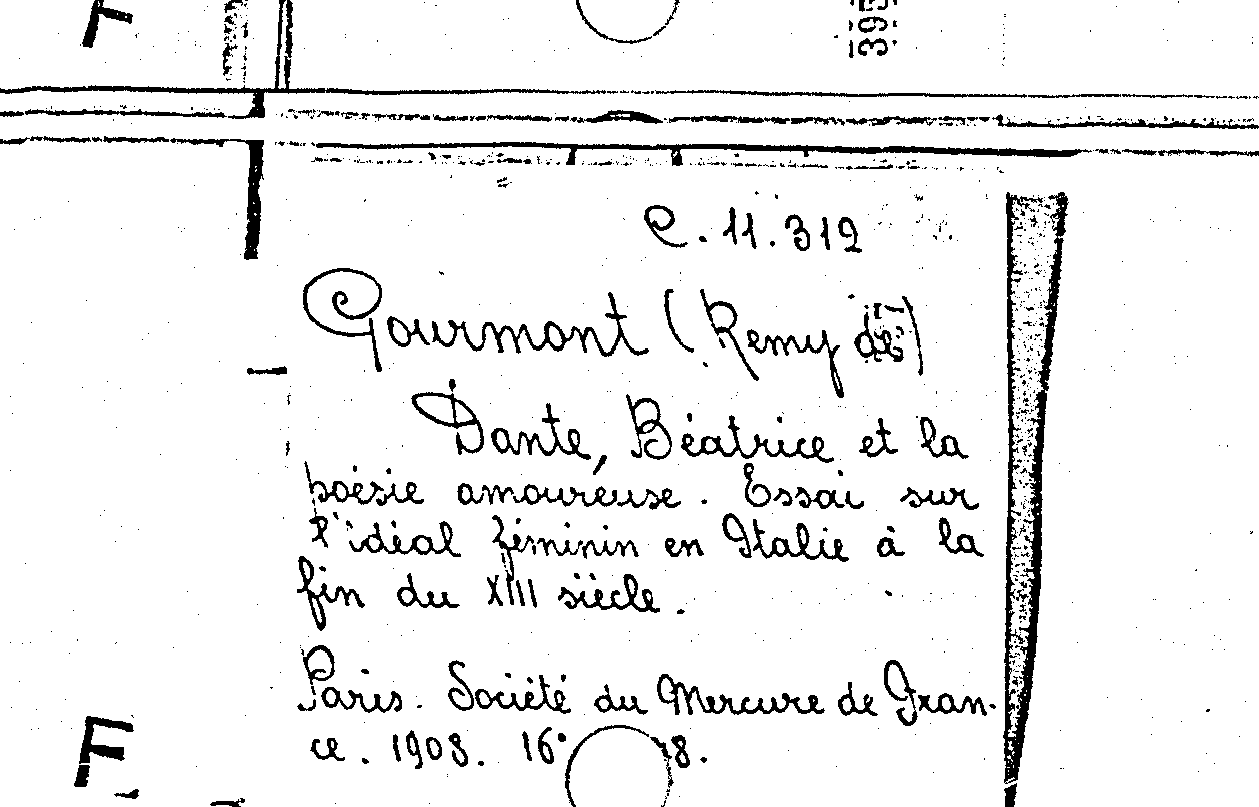 F
395
C. 11.312
Gourmont (Remy de)
Dante, Béatrice et la
poésie amoureuse. Essai sur
l'idéal féminin en Italie à la
fin du XIII siècle.
Paris. Société du Mercure de Fran-
ce. 1908. 16° 8.
F